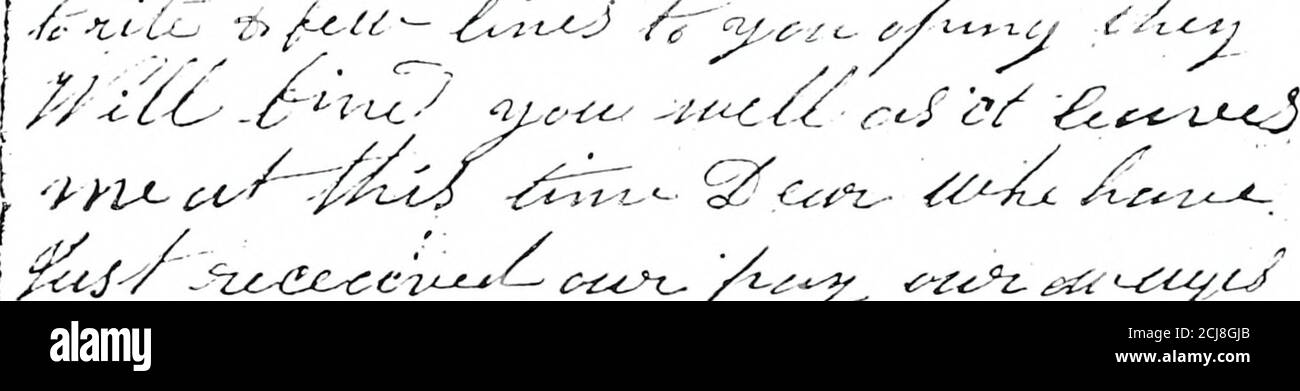 to rite a few lines to you oping they
Will find you well as it leaves
me at this time Dear whe have
Just receeived our pay our
alamy
Image ID: 2CJ8GJB
www.alamy.com